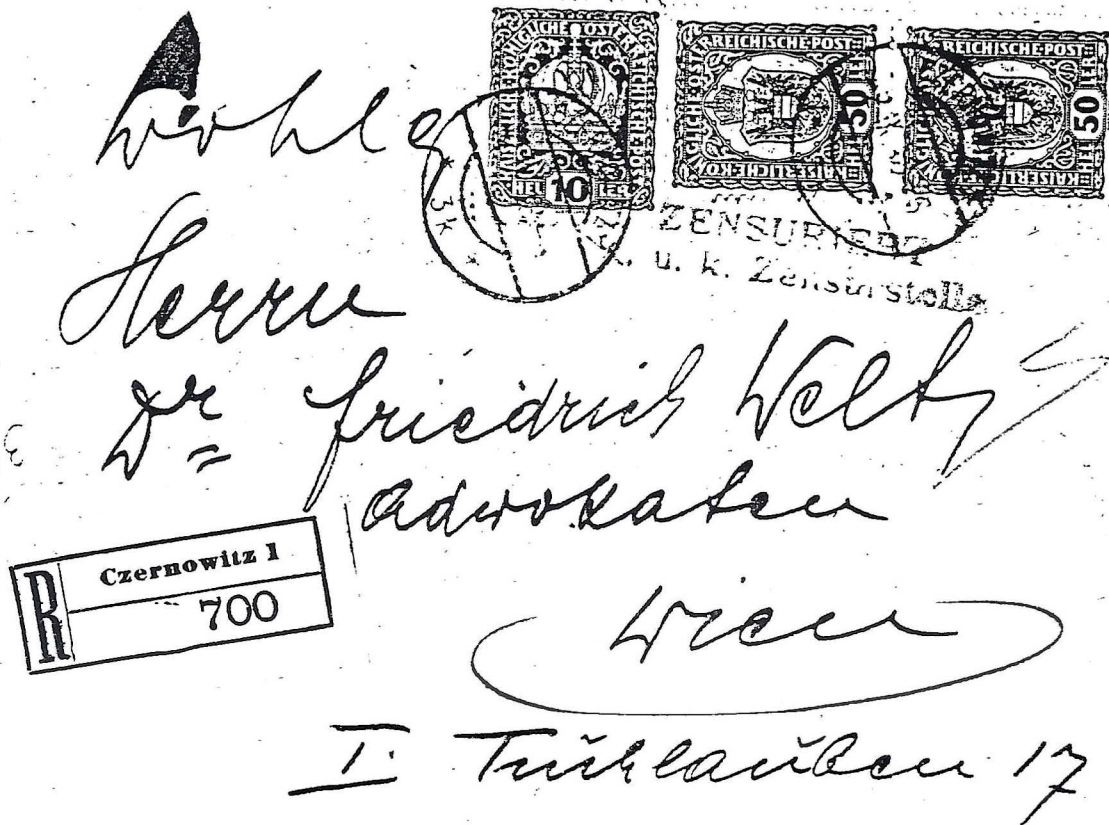 KAISERLICHE KÖNIGLICHE ÖSTERREICHISCHE POST
HELLER
10
KAISERLICHE KÖNIGLICHE ÖSTERREICHISCHE POST
50
HELLER
KAISERLICHE KÖNIGLICHE ÖSTERREICHISCHE POST
50
HELLER
3k
ZENSURIERT
k. u. k. Zensurstelle
Wohlg
Herrn
Dr Friedrich Welt
Advokaten
R Czernowitz 1
700
Wien
I. Tuchlauben 17